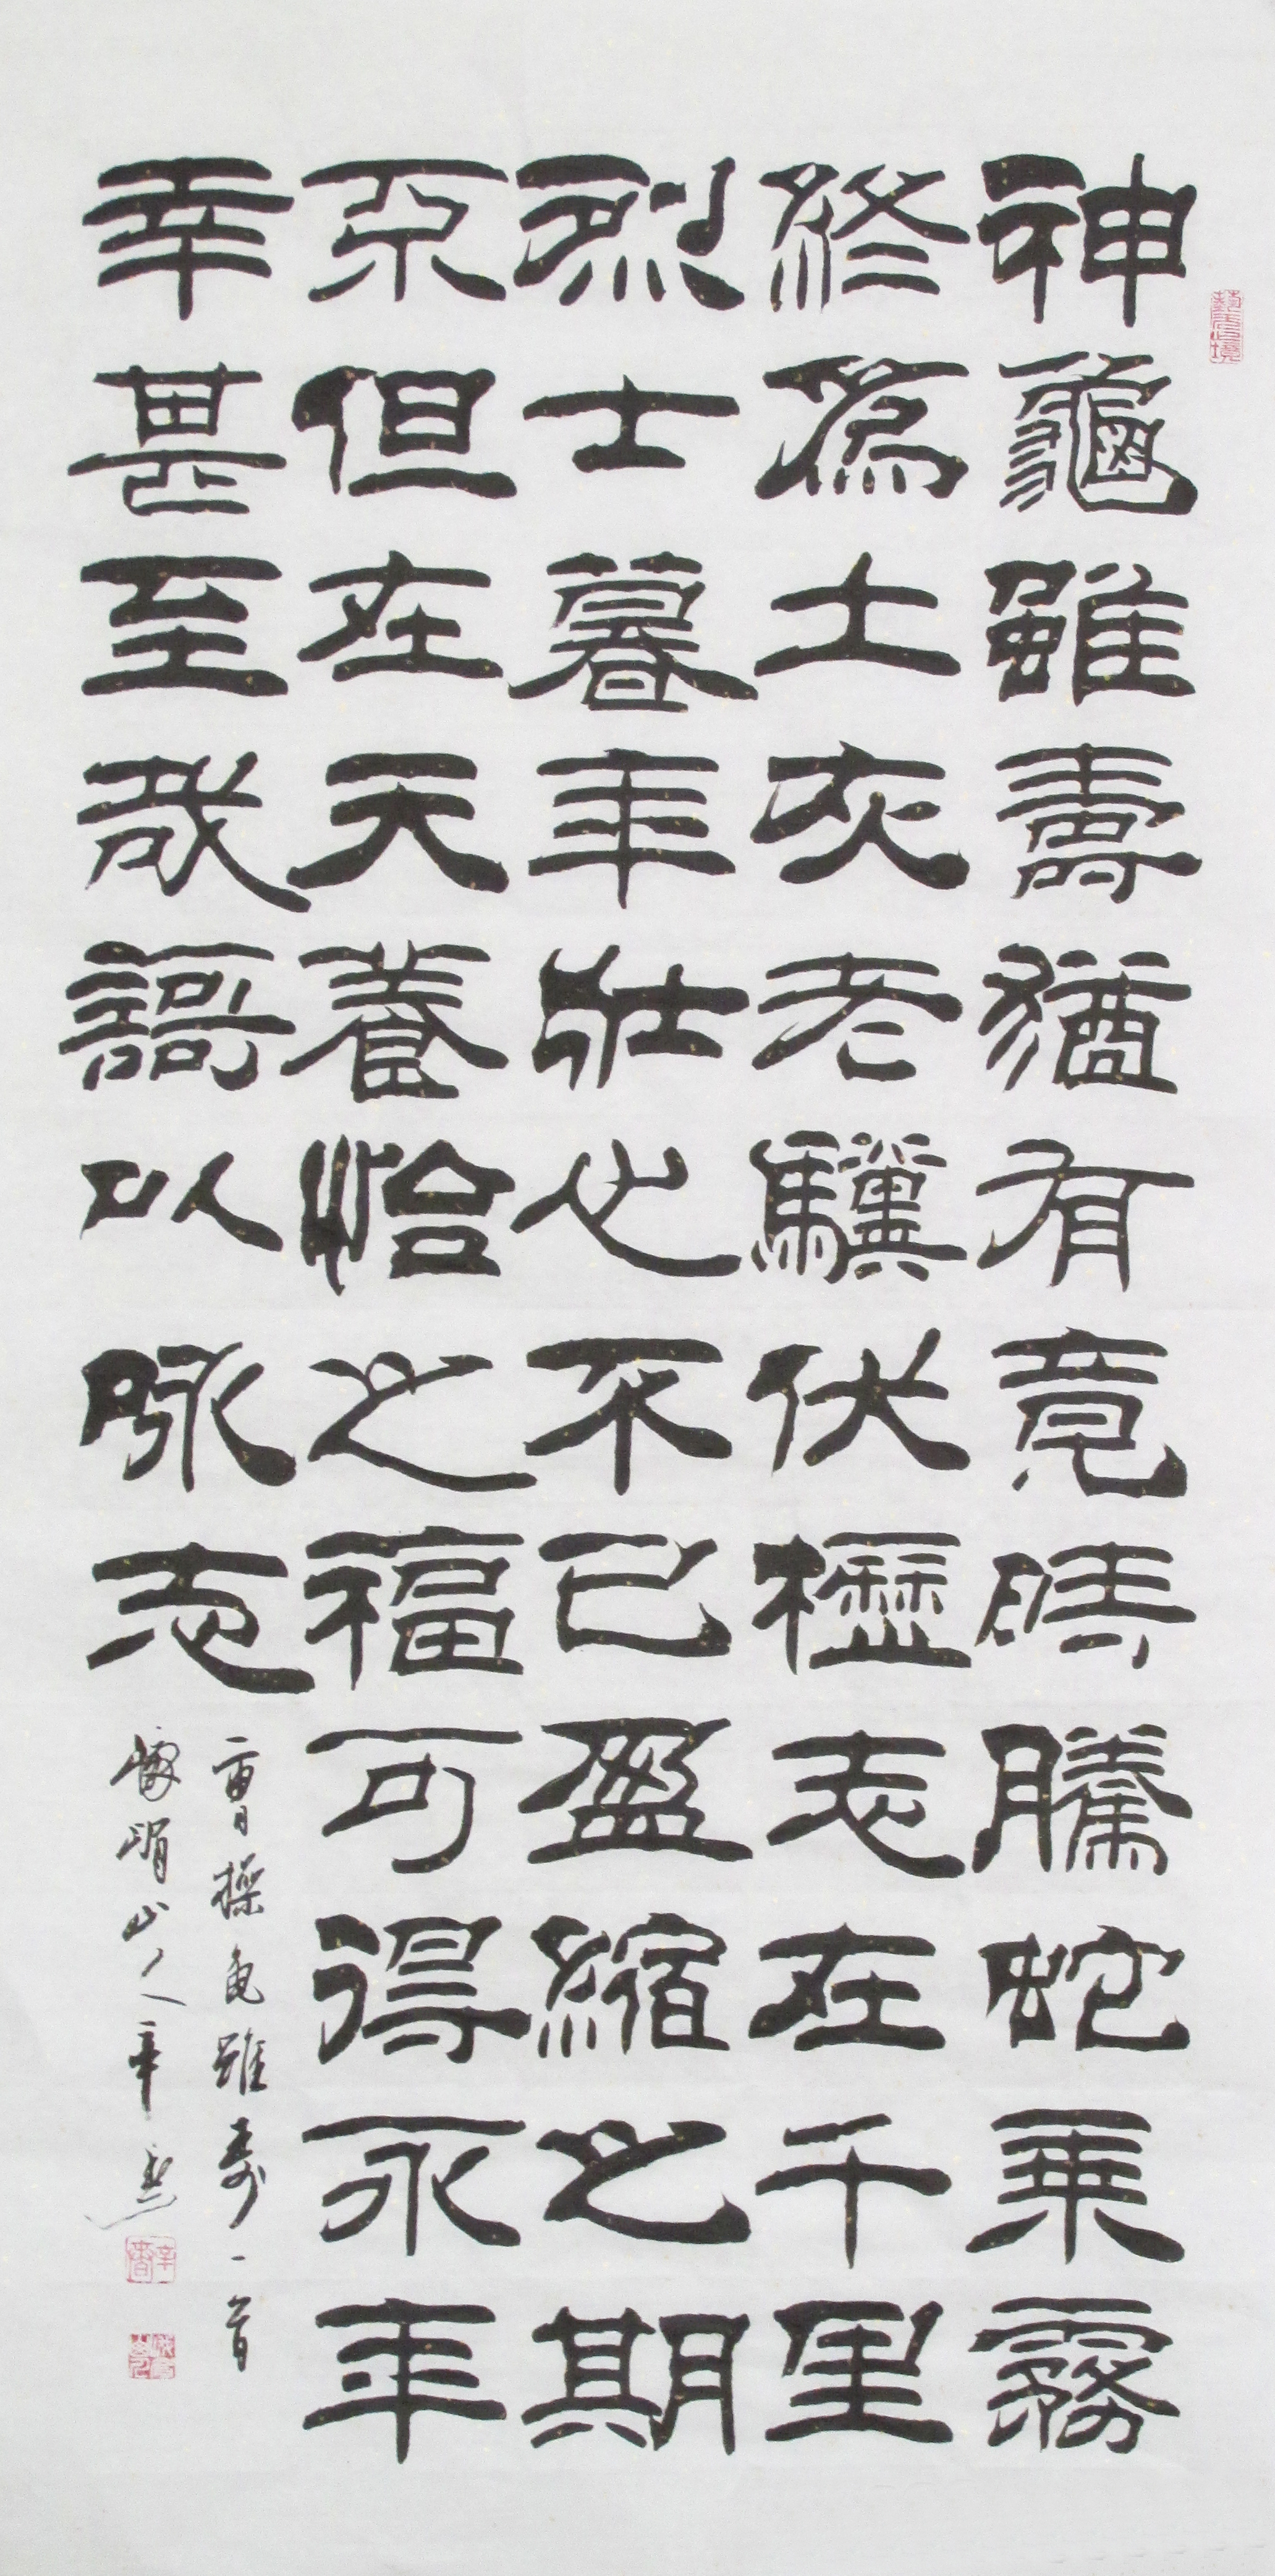 神龜雖壽猶有竟時騰蛇乘霧
終爲土灰老驥伏櫪志在千里
烈士暮年壯心不已盈縮之期
不但在天養怡之福可得永年
幸甚至哉謌以咏志
曹操龟雖寿一首
峨嵋山人辛